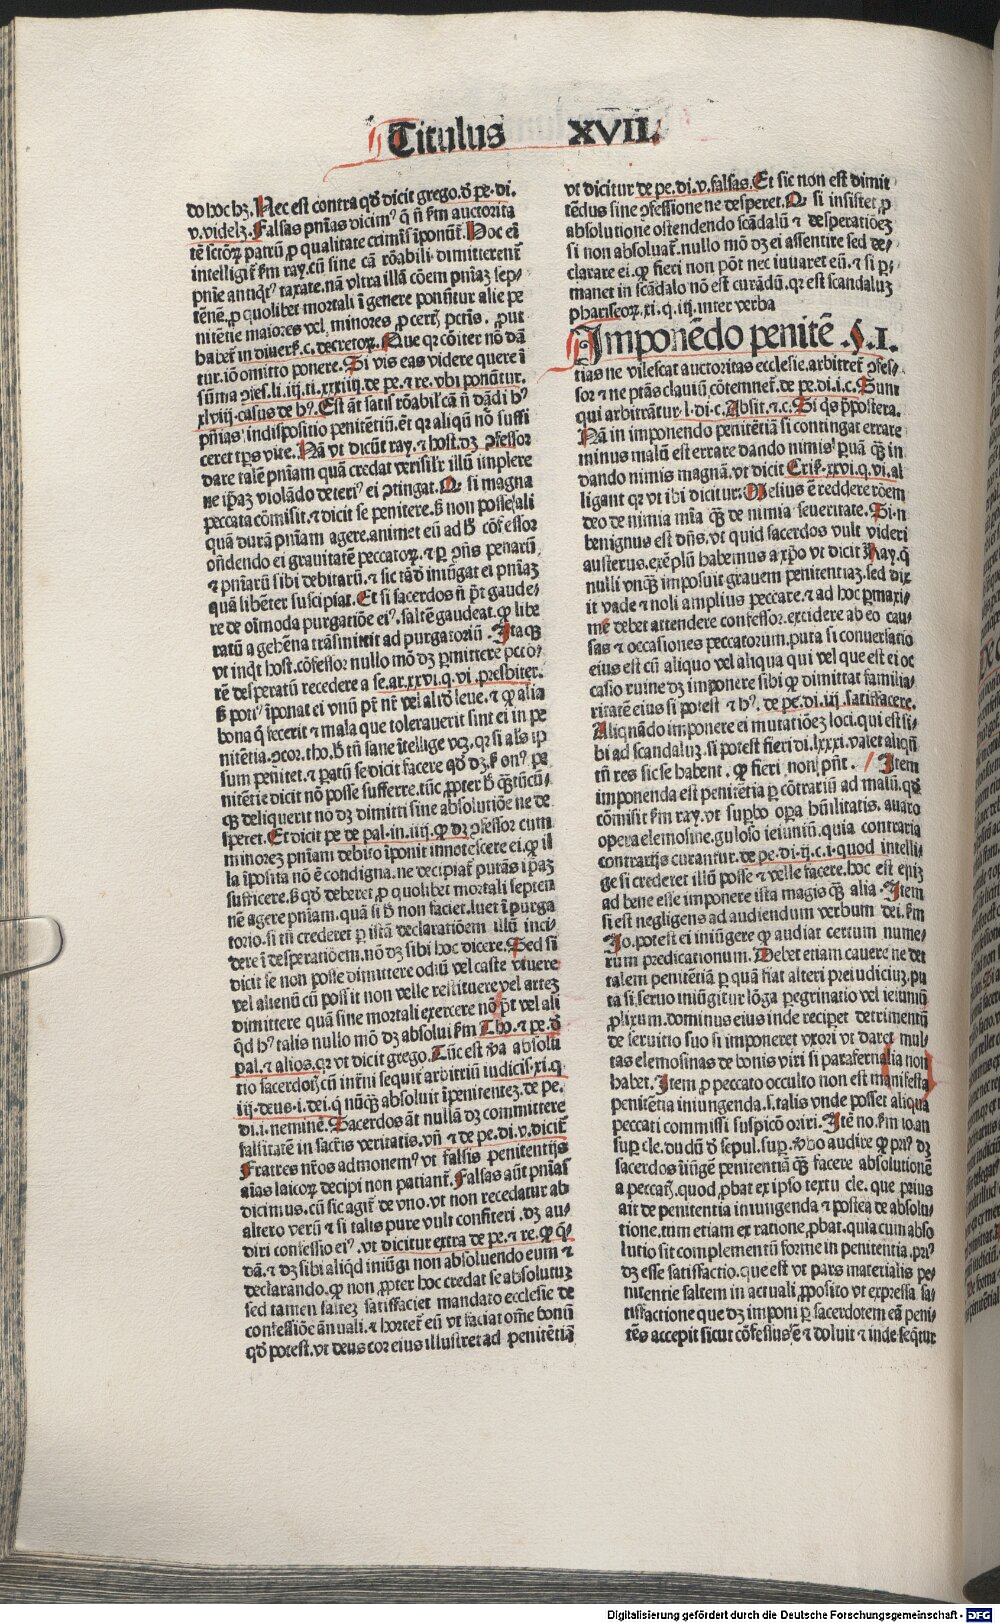 Titulus XVII.
do hoc hꝫ. Nec est contra qd̄ dicit grego. ꝺ̄ pe. di.
v. videlꝫ. Falsas pn̄ias dicimꝰ q̄ n̄ ẜm auctorita
tē sctōꝝ patrū ꝓ qualitate crimīs īponūt̄. Hoc eī
intelligit̄ ẜm ray. cū sine cā rōabili dimitterent̄
pnīe antiqͥtꝰ taxate. nā vltra illā cōem pn̄iaꝫ sep⸗
tēnē. ꝓ quolibet mortali ī genere ponūtur alie pe
nitētie maiores vel minores ꝓ certꝭ pctīs. ꝓut
habet̄ in diuersꝭ .c. decretoꝝ. Que qꝛ cōiter nō dā
tur. iō omitto ponere. Si vis eas videre quere ī
sūma ꝯfes. li. iij. ti. xxxiiij. de pe. ⁊ re. vbi ponūtur.
xlviij. casus de hꝰ. Est āt satis rōabilꝭ cā n̄ dādi hꝰ
pn̄ias indispositio penitētiū. Et qꝛ aliqū nō suffi
ceret tꝑs vite. Nā vt dicūt ray. ⁊ host. dꝫ ꝯfessor
dare talē pn̄iam quā credat verisilͥr illū implere
ne ip̄aꝫ violādo deteriꝰ ei ꝯtingat. Qꝙ si magna
peccata cōmisit. ⁊ dicit se penitere. ẜꝫ non posse ali
quā durā pn̄iam agere. animet eū ad hͦ cōfessor
on̄dendo ei grauitatē peccatoꝝ. ⁊ ꝑ ꝯn̄s penarū
⁊ pn̄iarū sibi debitarū. ⁊ sic tādē iniūgat ei pn̄iaꝫ
quā libēter suscipiat. Et si sacerdos n̄ pͦt gaude⸗
re de oīmoda purgatiōe eiꝰ. saltē gaudeat. ꝙ libe
ratū a gehēna trāsmittit ad purgatoriū. Itaqꝫ
vt inqͥt host. cōfessor nullo mō dꝫ ꝑmittere pctō⸗
rē desperatū recedere a se. ar. xxvi. q. vi. presbiter.
ẜꝫ potiꝰ īponat ei vnū pr̄ nr̄ vel aliqͥd leue. ⁊ ꝙ alia
bona q̄ fecerit ⁊ mala que tolerauerit sint ei in pe
nitētia. ꝯcor. tho. hͦ tn̄ sane ītellige vcꝫ. qꝛ si alͥs ip
sum penitet. ⁊ ꝑatū se dicit facere qd̄ dꝫ. ẜꝫ onꝰ pe
nitētie dicit nō posse sufferre. tūc ꝓpter hͦ qͣꝫtūcū⸗
qꝫ deliquerit nō dꝫ dimitti sine absolutiōe ne de
speret. Et dicit pe. de pal. in. iiij. ꝙ dꝫ ꝯfessor cum
minoreꝫ pn̄iam debito īponit innotescere ei. ꝙ il
la īposita nō ē condigna. ne decipiat̄ putās ip̄aꝫ
sufficere. ẜꝫ qd̄ deberet ꝓ quolibet mortali septen
nē agere pn̄iam. quā si hͦ non faciet. luet ī purga
torio. si tn̄ crederet ꝑ istā declarationem illū inci⸗
dere ī desperationem. nō dꝫ sibi hoc dicere. Sed si
dicit se non posse dimittere odiū vel caste viuere
vel alienū cū possit non velle restituere vel arteꝫ
dimittere quā sine mortali exercere nō pͦt vel ali
qͥd hꝰ talis nullo mō dꝫ absolui ẜm Tho. ⁊ pe. ꝺ̄
pal. ⁊ alios. qꝛ vt dicit grego. Tūc est ꝟa absolu
tio sacerdotꝭ. cū int̄ni sequit̄ arbitriū iudicis. xi. q.
iij. deus. i. dei. q nūqͣꝫ absoluit īpenitenteꝫ. de pe.
di. i. neminē. Sacerdos āt nullā dꝫ committere
falsitatē in sacrīs veritatis. vn̄ ⁊ de pe. di. v. dicit̄
Fratres nr̄os admonemꝰ vt falsis penitentijs
aīas laicoꝝ decipi non patiant̄. Falsas aūt pn̄ias
dicimus. cū sic agit̄ de vno. vt non recedatur ab
altero verū ⁊ si talis pure vult confiteri. dꝫ au⸗
diri confessio eiꝰ. vt dicitur extra de pe. ⁊ re. ꝙ q̄⸗
dā. ⁊ dꝫ sibi aliqͥd iniūgi non absoluendo eum ⁊
declarando. ꝙ non ꝓpter hoc credat se absolutuꝫ
sed tamen salteꝫ satisfaciet mandato ecclesie de
confessiōe ānuali. ⁊ hortet̄ eū vt faciat om̄e bonū
qd̄ potest. vt deus cor eius illustret ad penitētiā
vt dicitur de pe. di. v. falsas. Et sic non est dimit
tēdus sine ꝯfessione ne desperet. Qꝙ si insistet ꝓ
absolutione ostendendo scādalū ⁊ desperatiōeꝫ
si non absoluat̄. nullo mō dꝫ ei assentire sed de⸗
clarare ei. ꝙ fieri non pōt nec iuuaret eū. ⁊ si ꝑ⸗
manet in scādalo nō est curādū. qꝛ est scandaluꝫ
phariseoꝝ. xi. q. iij. inter verba
Imponēdo penitē .§.I.
tias ne vilescat auctoritas ecclesie. arbitret̄ ꝯfes⸗
sor ⁊ ne ptās clauiū cōtemnet̄. de pe. di. i. c. Sunt
qui arbitrātur. l. di. c. Absit. ⁊ .c. Si qͥs p̄postera.
Nā in imponendo penitētiā si contingat errare
minus malū est errare dando nimis ꝑuā qͣꝫ in
dando nimis magnā. vt dicit Crisꝭ. xxvi. q. vi. al
ligant qꝛ vt ibi dicitur: Melius ē reddere rōem
deo de nimia mīa qͣꝫ de nimia seueritate. Si. n
benignus est dn̄s. vt quid sacerdos vult videri
austerus. exēplū habemus a xp̄o vt dicit Ray. q̄
nulli vnqͣꝫ imposuit grauem penitentiaꝫ. sed dix
it vade ⁊ noli amplius peccare. ⁊ ad hoc ꝑmaxi⸗
mē debet attendere confessor. excidere ab eo cau⸗
sas ⁊ occasiones peccatorum. puta si conuersatio
eius est cū aliquo vel aliqua qui vel que est ei oc
casio ruine dꝫ imponere sibi ꝙ dimittat familia⸗
ritatē eius si potest ⁊ hꝰ. de pe. di. iij. satisfacere.
Aliquādo imponere ei mutatiōeꝫ loci. qui est si⸗
bi ad scandaluꝫ. si potest fieri di. lxxxi. valet aliqn̄
tn̄ res sic se habent. ꝙ fieri non pn̄t. Item
imponenda est penitētia ꝑ cōtrariū ad malū. qd̄
cōmisit ẜm ray. vt suꝑbo oꝑa hūilitatis. auaro
opera elemosine. guloso ieiuniū. quia contraria
contrarijs curantur. de pe. di. ij. c. i. quod intelli⸗
ge si crederet illū posse ⁊ velle facere. hoc est epiꝫ
ad bene esse imponere ista magis qͣꝫ alia. Item
si est negligens ad audiendum verbum dei. ẜm
Jo. potest ei iniūgere ꝙ audiat certum nume⸗
rum predicationum. Debet etiam cauere ne det
talem penitētiā ꝑ quā fiat alteri preiudiciuꝫ. pu
ta si seruo iniūgitur lōga ꝑegrinatio vel ieiuniū
ꝓlixum. dominus eius inde reciperet detrimentū
de seruitio suo si imponeret vxori vt daret mul⸗
tas elemosinas de bonis viri si parafernalia non
habet. Item ꝓ peccato occulto non est manifesta
penitētia iniungenda. s. talis vnde posset aliqua
peccati commissi suspicō oriri. Itē no. ẜm io. an
suꝑ cle. dudū ꝺ̄ sepul. suꝑ. ꝟbo audire ꝙ priꝰ dꝫ
sacerdos īiūgē penitentiā qͣꝫ facere absolutionē
a peccatꝭ. quod ꝓbat ex ipso textu cle. que prius
ait de penitentia iniungenda ⁊ postea de absolu⸗
tione. tum etiam ex ratione. ꝓbat. quia cum abso
lutio sit complementū forme in penitentia. priꝰ
dꝫ esse satisfactio. que est vt pars materialis pe⸗
nitentie saltem in actuali ꝓposito vt expressa sa⸗
tisfactione que dꝫ imponi ꝑ sacerdotem eā peni⸗
tēs accepit sicut cōfessus ē ⁊ doluit ⁊ inde seqͥtur
Digitalisierung gefördert durch die Deutsche Forschungsgemeinschaft - DFG